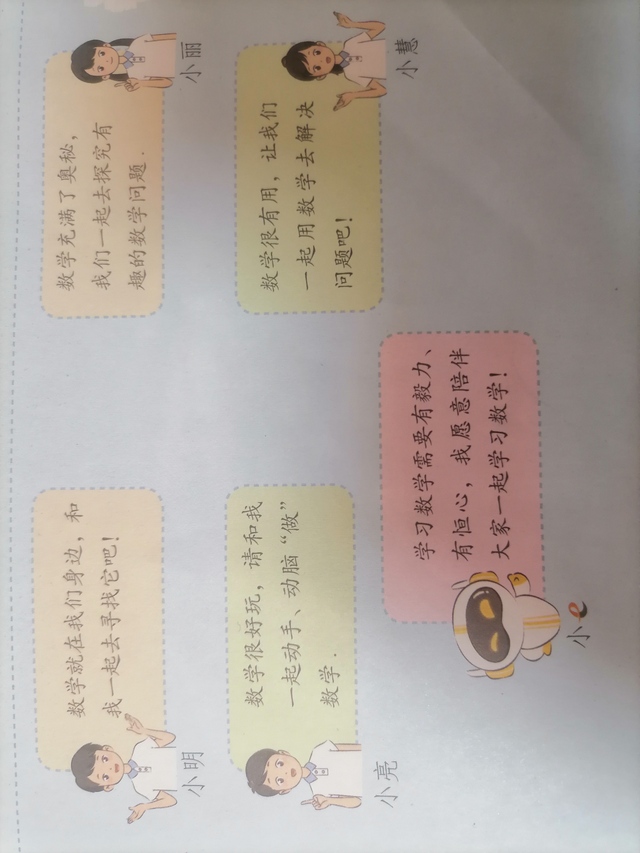 数学就在我们身边，和
我一起去寻找它吧！
小明
数学充满了奥秘，
我们一起去探究有
趣的数学问题．
小丽
数学很好玩，请和我
一起动手、动脑“做”
数学．
小亮
数学很有用，让我们
一起用数学去解决
问题吧！
小慧
学习数学需要有毅力、
有恒心，我愿意陪伴
大家一起学习数学！
小e